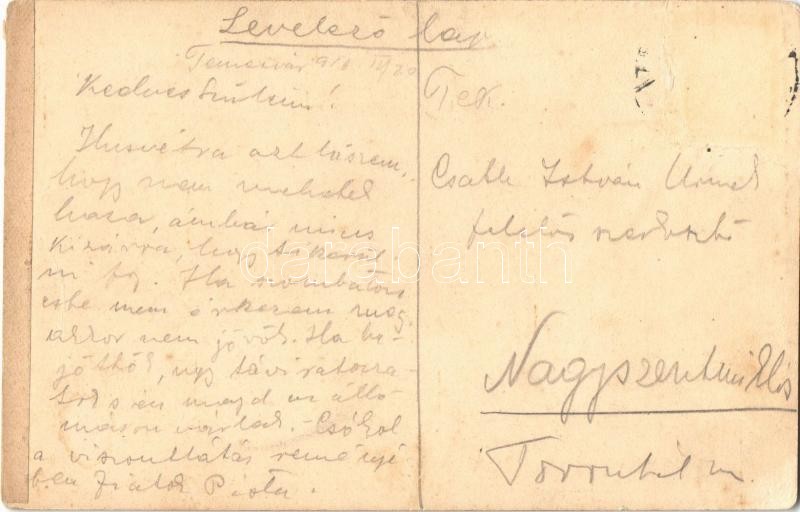 Levelező lap
Temesvár 916 IV/20
Kedves Szüleim!
Husvétra azt hiszem,
hogy nem mehetek
haza, ámbár nincs
kizárva, hogy sikerül-
ni fog. Ha szombaton
este nem érkezem meg,
akkor nem jövök. Ha be-
jöttök, ugy táviratozza-
tok s én majd az állo-
máson várlak. - Csókol
a viszontlátás reményé-
ben fiatok Pista.
Tek.
Csath István Urnak
felelős szerkesztő
Nagyszentmiklós
Torontál m.
darabanth